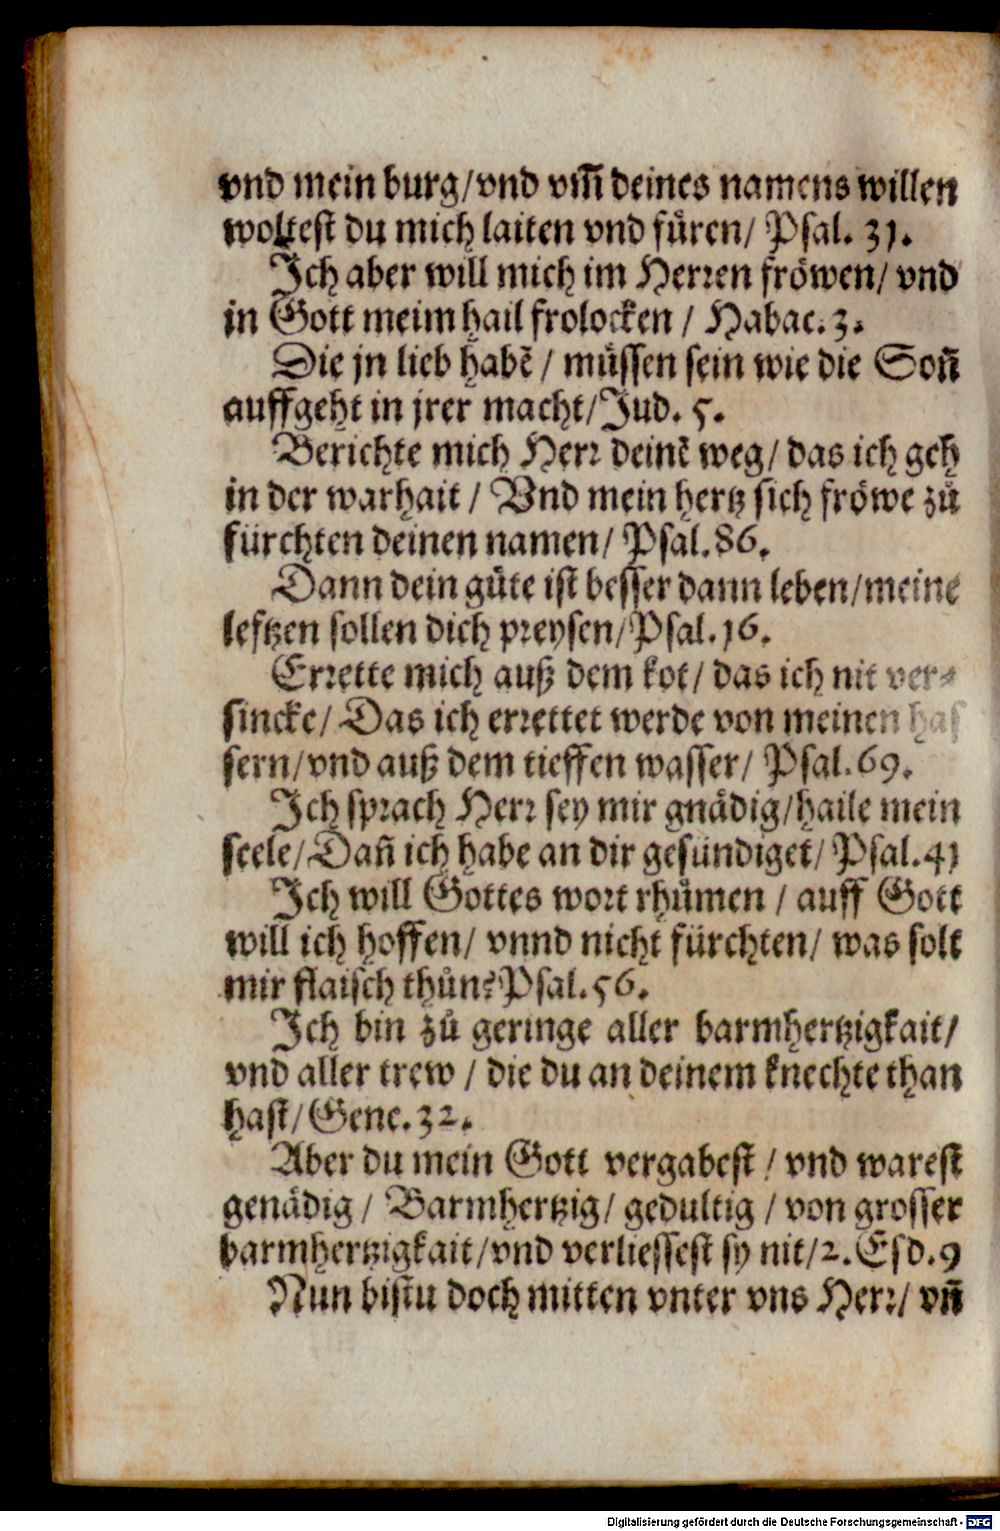 vnd mein burg/vnd vm̃ deines namens willen
woltest du mich laiten vnd fuͤren/ Psal. 31.
Ich aber will mich im Herren froͤwen/ vnd
in Gott meim hail frolocken / Habac. 3.
Die jn lieb habẽ / muͤssen sein wie die Soñ
auffgeht in jrer macht/Jud. 5.
Berichte mich Herr deinẽ weg/ das ich geh
in der warhait / Vnd mein hertz sich froͤwe zuͦ
fürchten deinen namen/ Psal.86.
Dann dein guͤte ist besser dann leben/meine
leftzen sollen dich preysen/Psal.16.
Errette mich auß dem kot/ das ich nit ver⸗
sincke/ Das ich errettet werde von meinen has
sern/vnd auß dem tieffen wasser/ Psal.69.
Ich sprach Herr sey mir gnaͤdig/haile mein
seele/Dañ ich habe an dir gesündiget/ Psal.41
Ich will Gottes wort rhuͤmen / auff Gott
will ich hoffen/ vnnd nicht fürchten/ was solt
mir flaisch thuͦn?Psal.56.
Ich bin zuͦ geringe aller barmhertzigkait/
vnd aller trew / die du an deinem knechte than
hast/Gene.32.
Aber du mein Gott vergabest / vnd warest
genaͤdig / Barmhertzig/ gedultig / von grosser
barmhertzigkait/vnd verliessest sy nit/2.Esd.9
Nun bistu doch mitten vnter vns Herr/ vñ
Digitalisierung gefördert durch die Deutsche Forschungsgemeinschaft - DFG